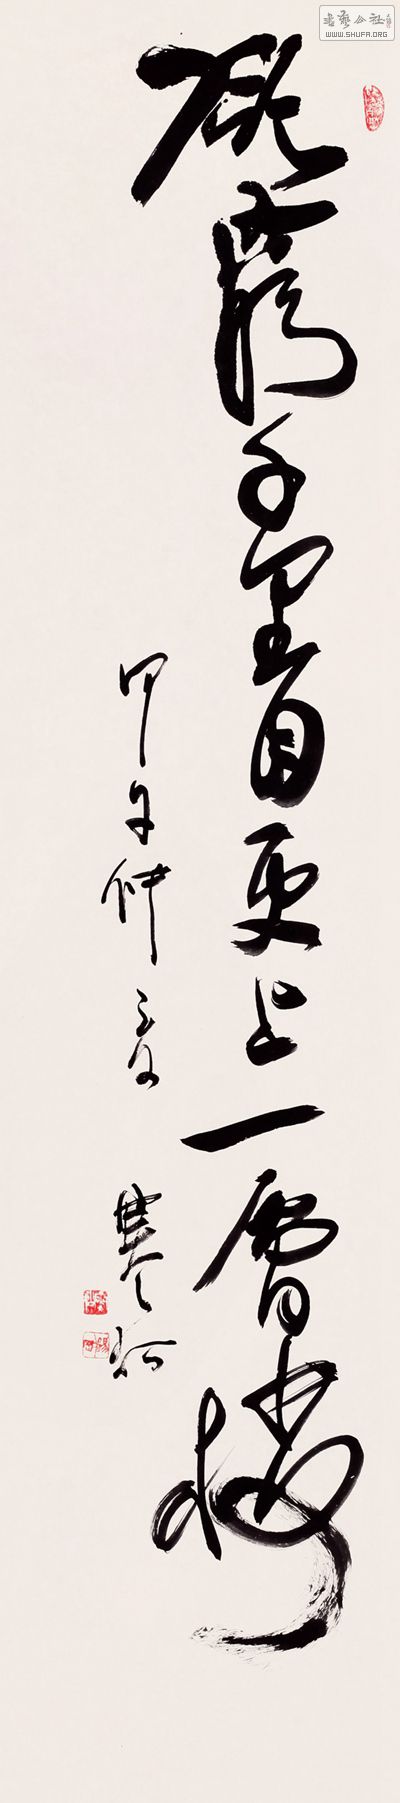 欲穷千里目更上一层楼
甲午仲夏
书艺公社
WWW.SHUFA.ORG